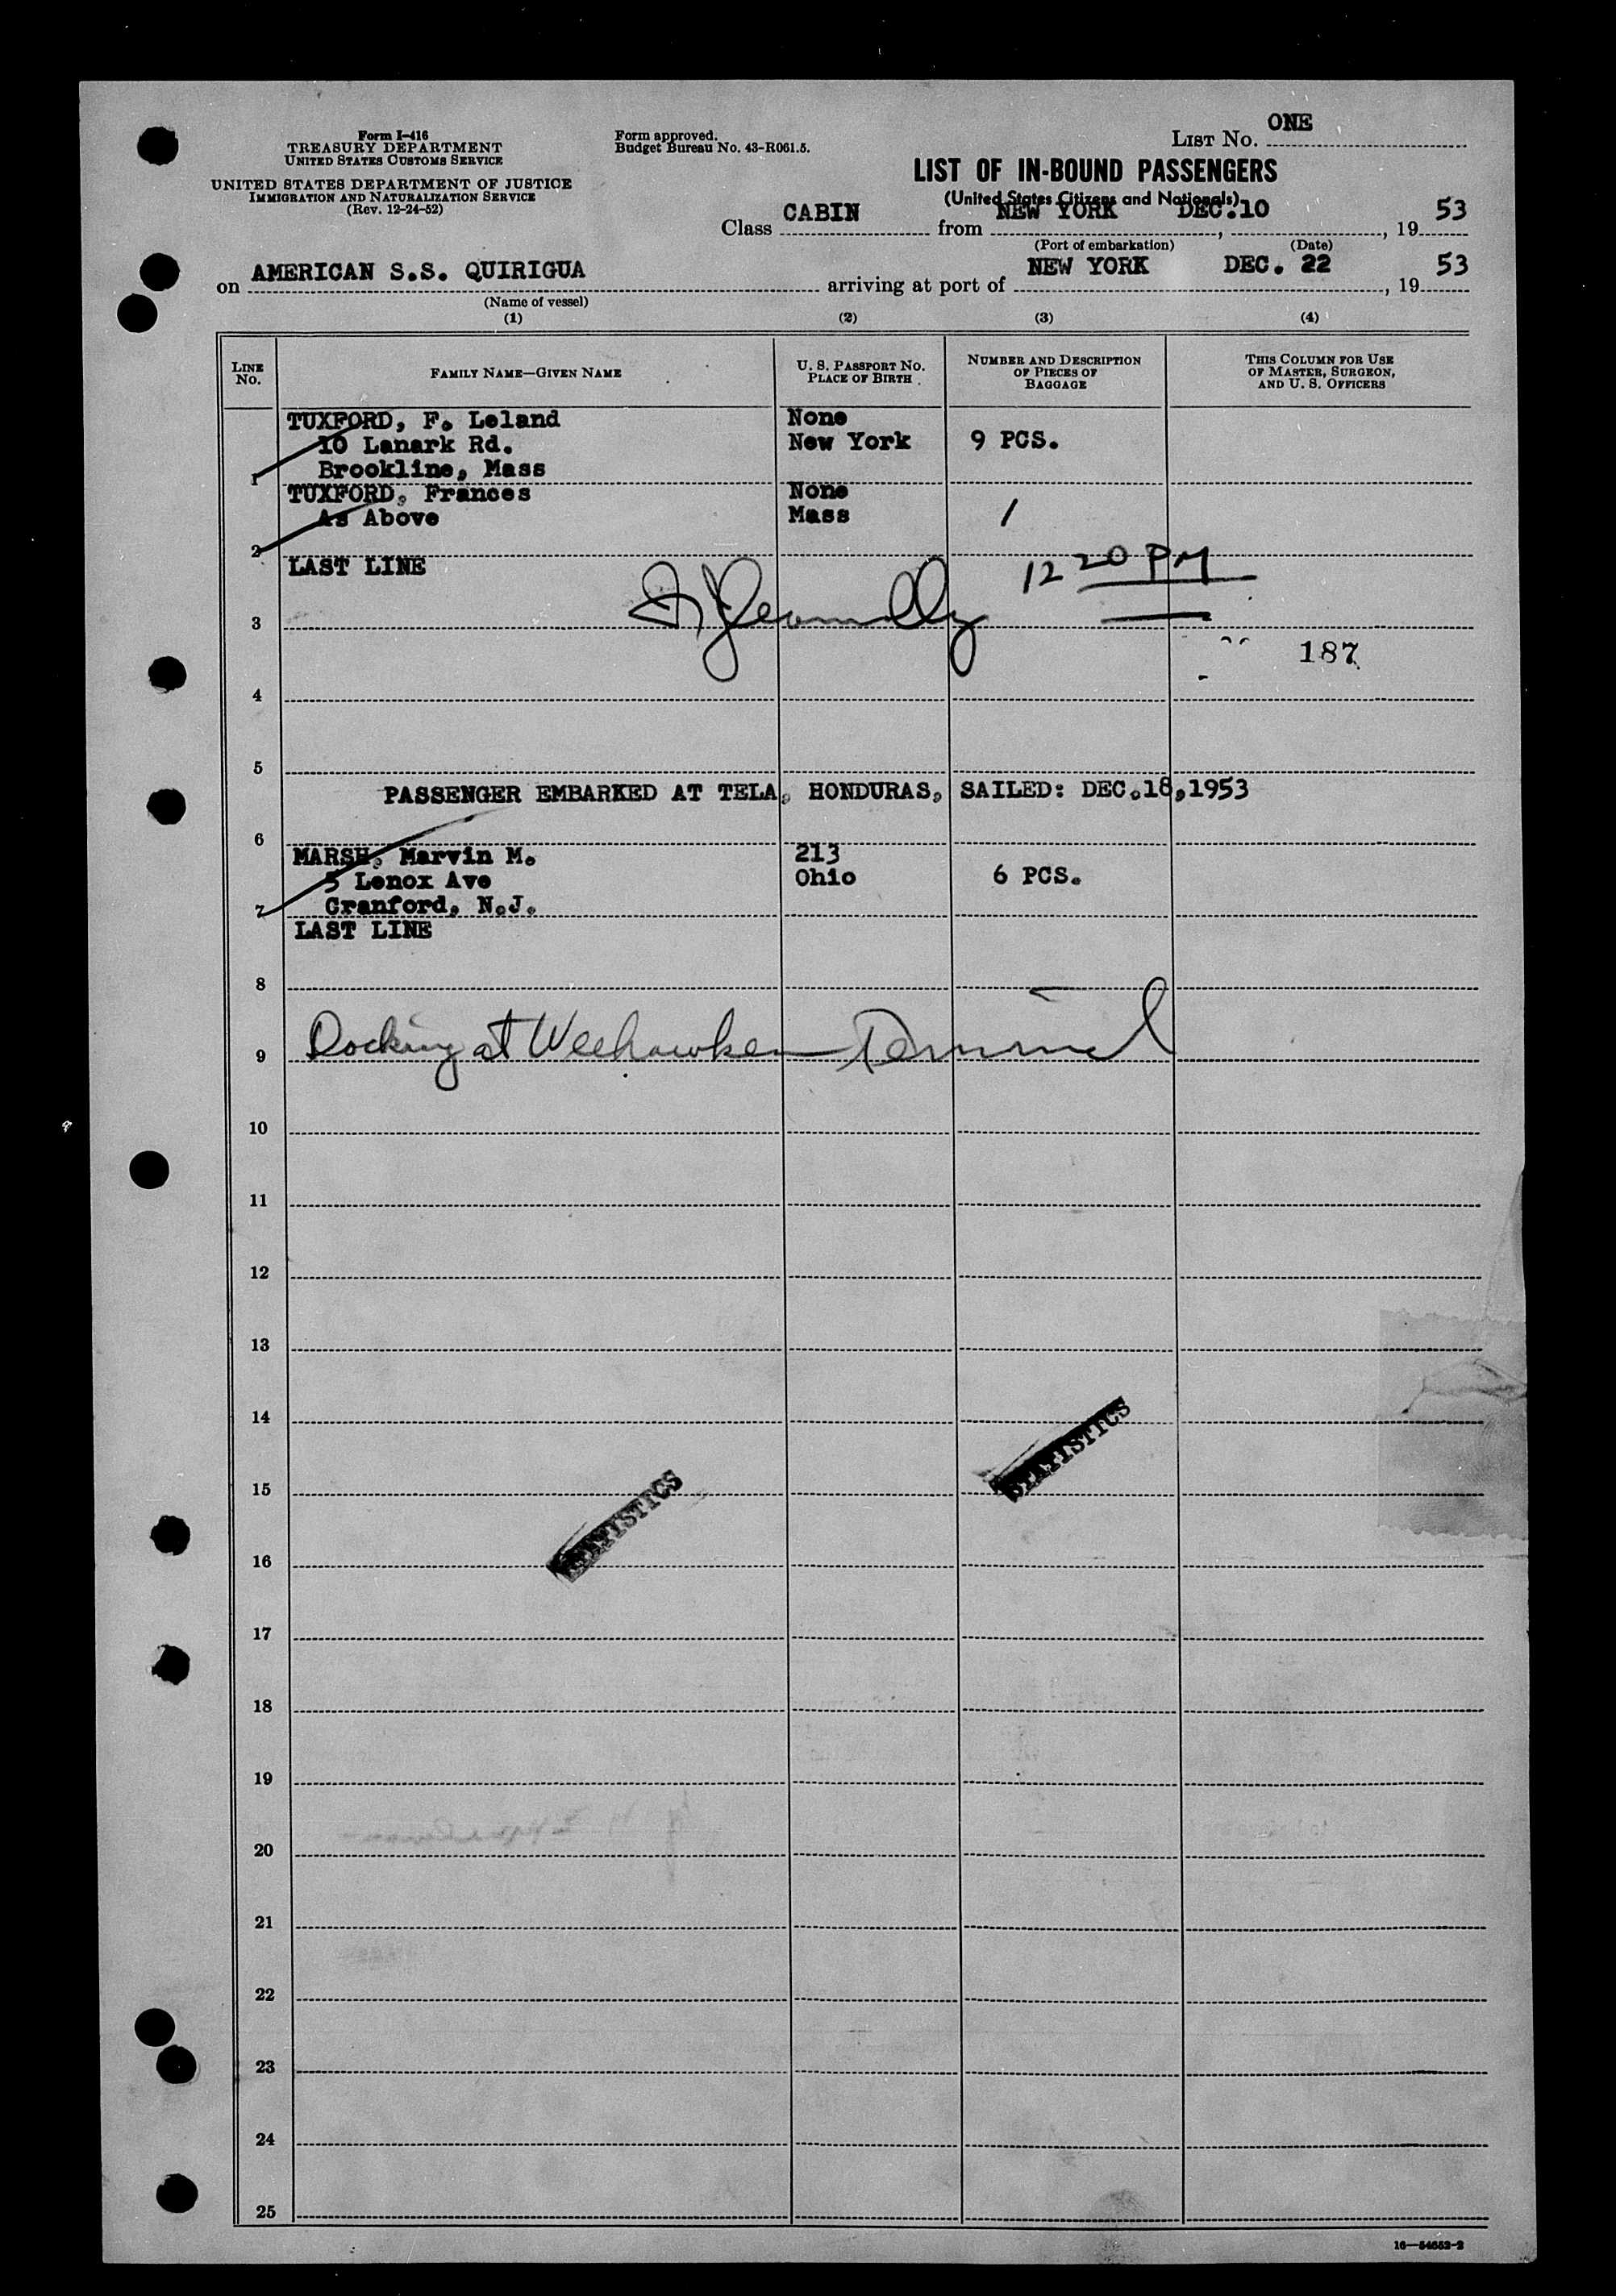 Form I-416
TREASURY DEPARTMENT
UNITED STATES CUSTOMS SERVICE
UNITED STATES DEPARTMENT OF JUSTICE
IMMIGRATION AND NATURALIZATION SERVICE
(Rev. 12-24-52)
Form approved.
Budget Bureau No. 43-R061.5.
LIST No. ONE
LIST OF IN-BOUND PASSENGERS
(United States Citizens and Nationals)
Class CABIN from NEW YORK, DEC. 10, 19 53
(Port of embarkation) (Date)
on AMERICAN S.S. QUIRIGUA arriving at port of NEW YORK DEC. 22, 19 53
(Name of vessel)
(1) (2) (3) (4)
LINE No. FAMILY NAME—GIVEN NAME U. S. PASSPORT NO. PLACE OF BIRTH NUMBER AND DESCRIPTION OF PIECES OF BAGGAGE THIS COLUMN FOR USE OF MASTER, SURGEON, AND U. S. OFFICERS
TUXFORD, F. Leland None
10 Lanark Rd. New York 9 PCS.
1 Brookline, Mass
TUXFORD, Frances None
As Above Mass /
2
LAST LINE 12 20 PM
3
187
4
5
PASSENGER EMBARKED AT TELA, HONDURAS, SAILED: DEC.18,1953
6
MARSH, Marvin M. 213
5 Lenox Ave Ohio 6 PCS.
7 Cranford, N.J.
LAST LINE
8
9 Docking at Weehawken Terminal
10
11
12
13
14
STATISTICS
15
STATISTICS
16
17
18
19
20
21
22
23
24
25
16—54652-2